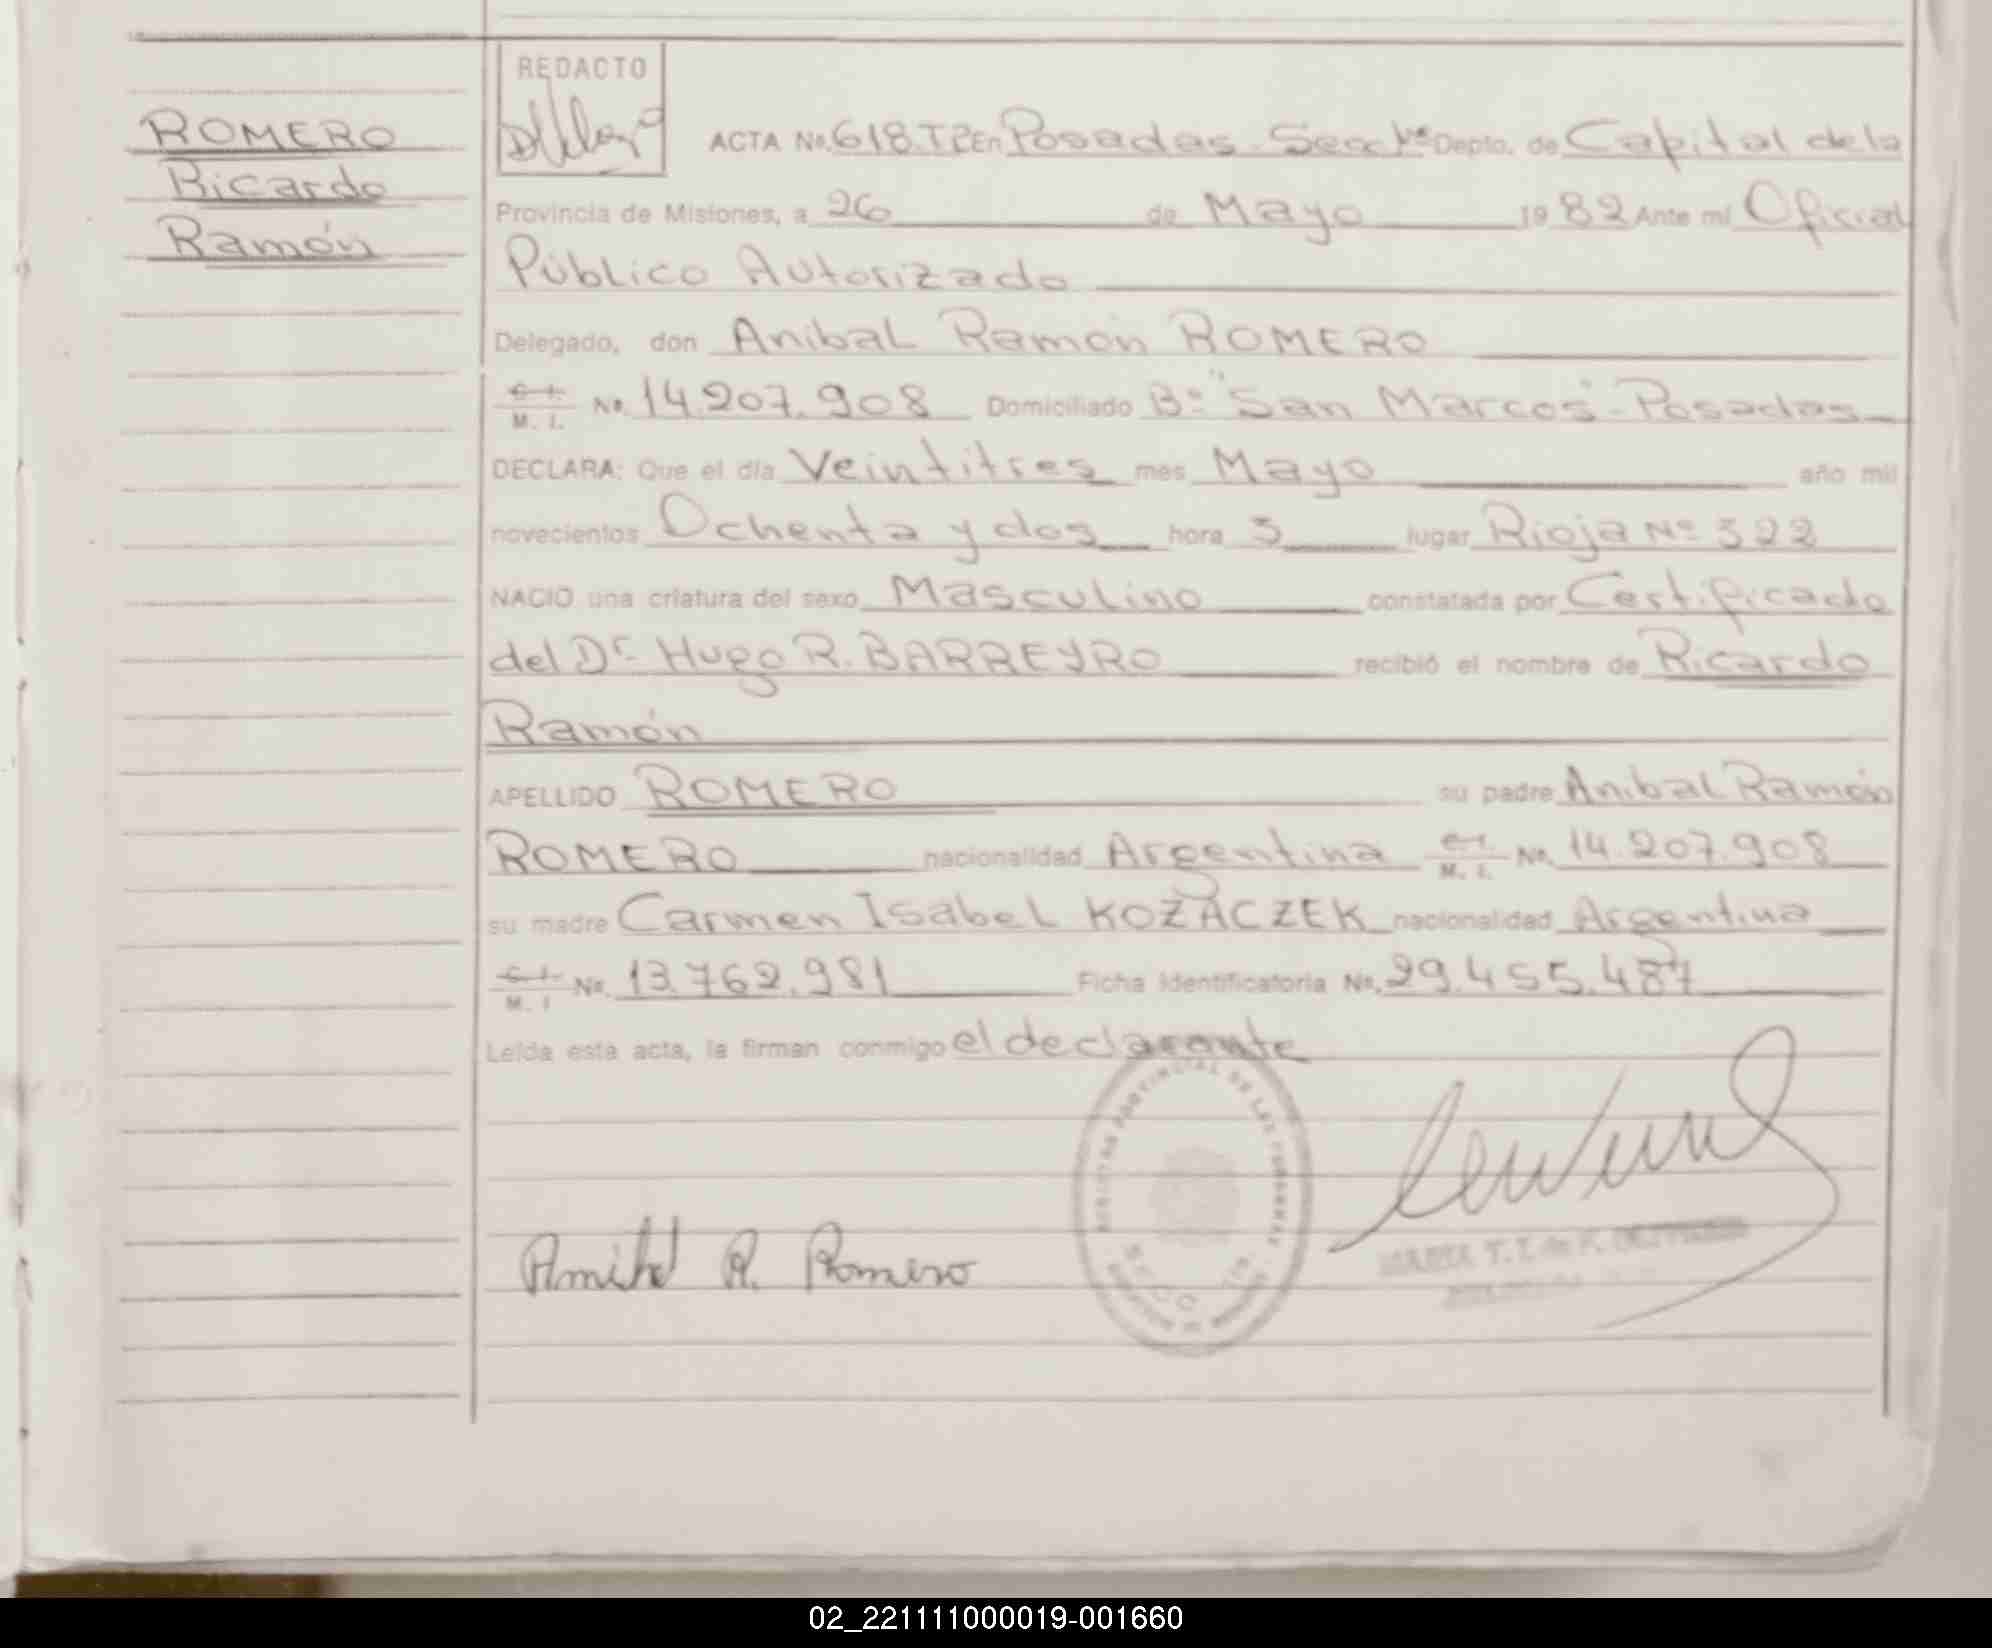 REDACTO
ROMERO
Ricardo
Ramón
ACTA No. 618.TP En Posadas - Secc 1ra Depto. de Capital de la
Provincia de Misiones, a 26 de Mayo 19 82 Ante mí Oficial
Público Autorizado
Delegado, don Anibal Ramón ROMERO
C. I.
M. I. No. 14.207.908 Domiciliado Bº "San Marcos" - Posadas
DECLARA: Que el día Veintitres mes Mayo año mil
novecientos Ochenta y dos hora 3 lugar Rioja Nº 322
NACIO una criatura del sexo Masculino constatada por Certificado
del Dr Hugo R. BARREYRO recibió el nombre de Ricardo
Ramón
APELLIDO ROMERO su padre Anibal Ramón
ROMERO nacionalidad Argentina C. I.
M. I. No. 14.207.908
su madre Carmen Isabel KOZACZEK nacionalidad Argentina
C. I.
M. I. No. 13.762.981 Ficha Identificatoria No. 29.455.487
Leída esta acta, la firman conmigo el declarante
R. Romero
MARIA T.
02_221111000019-001660